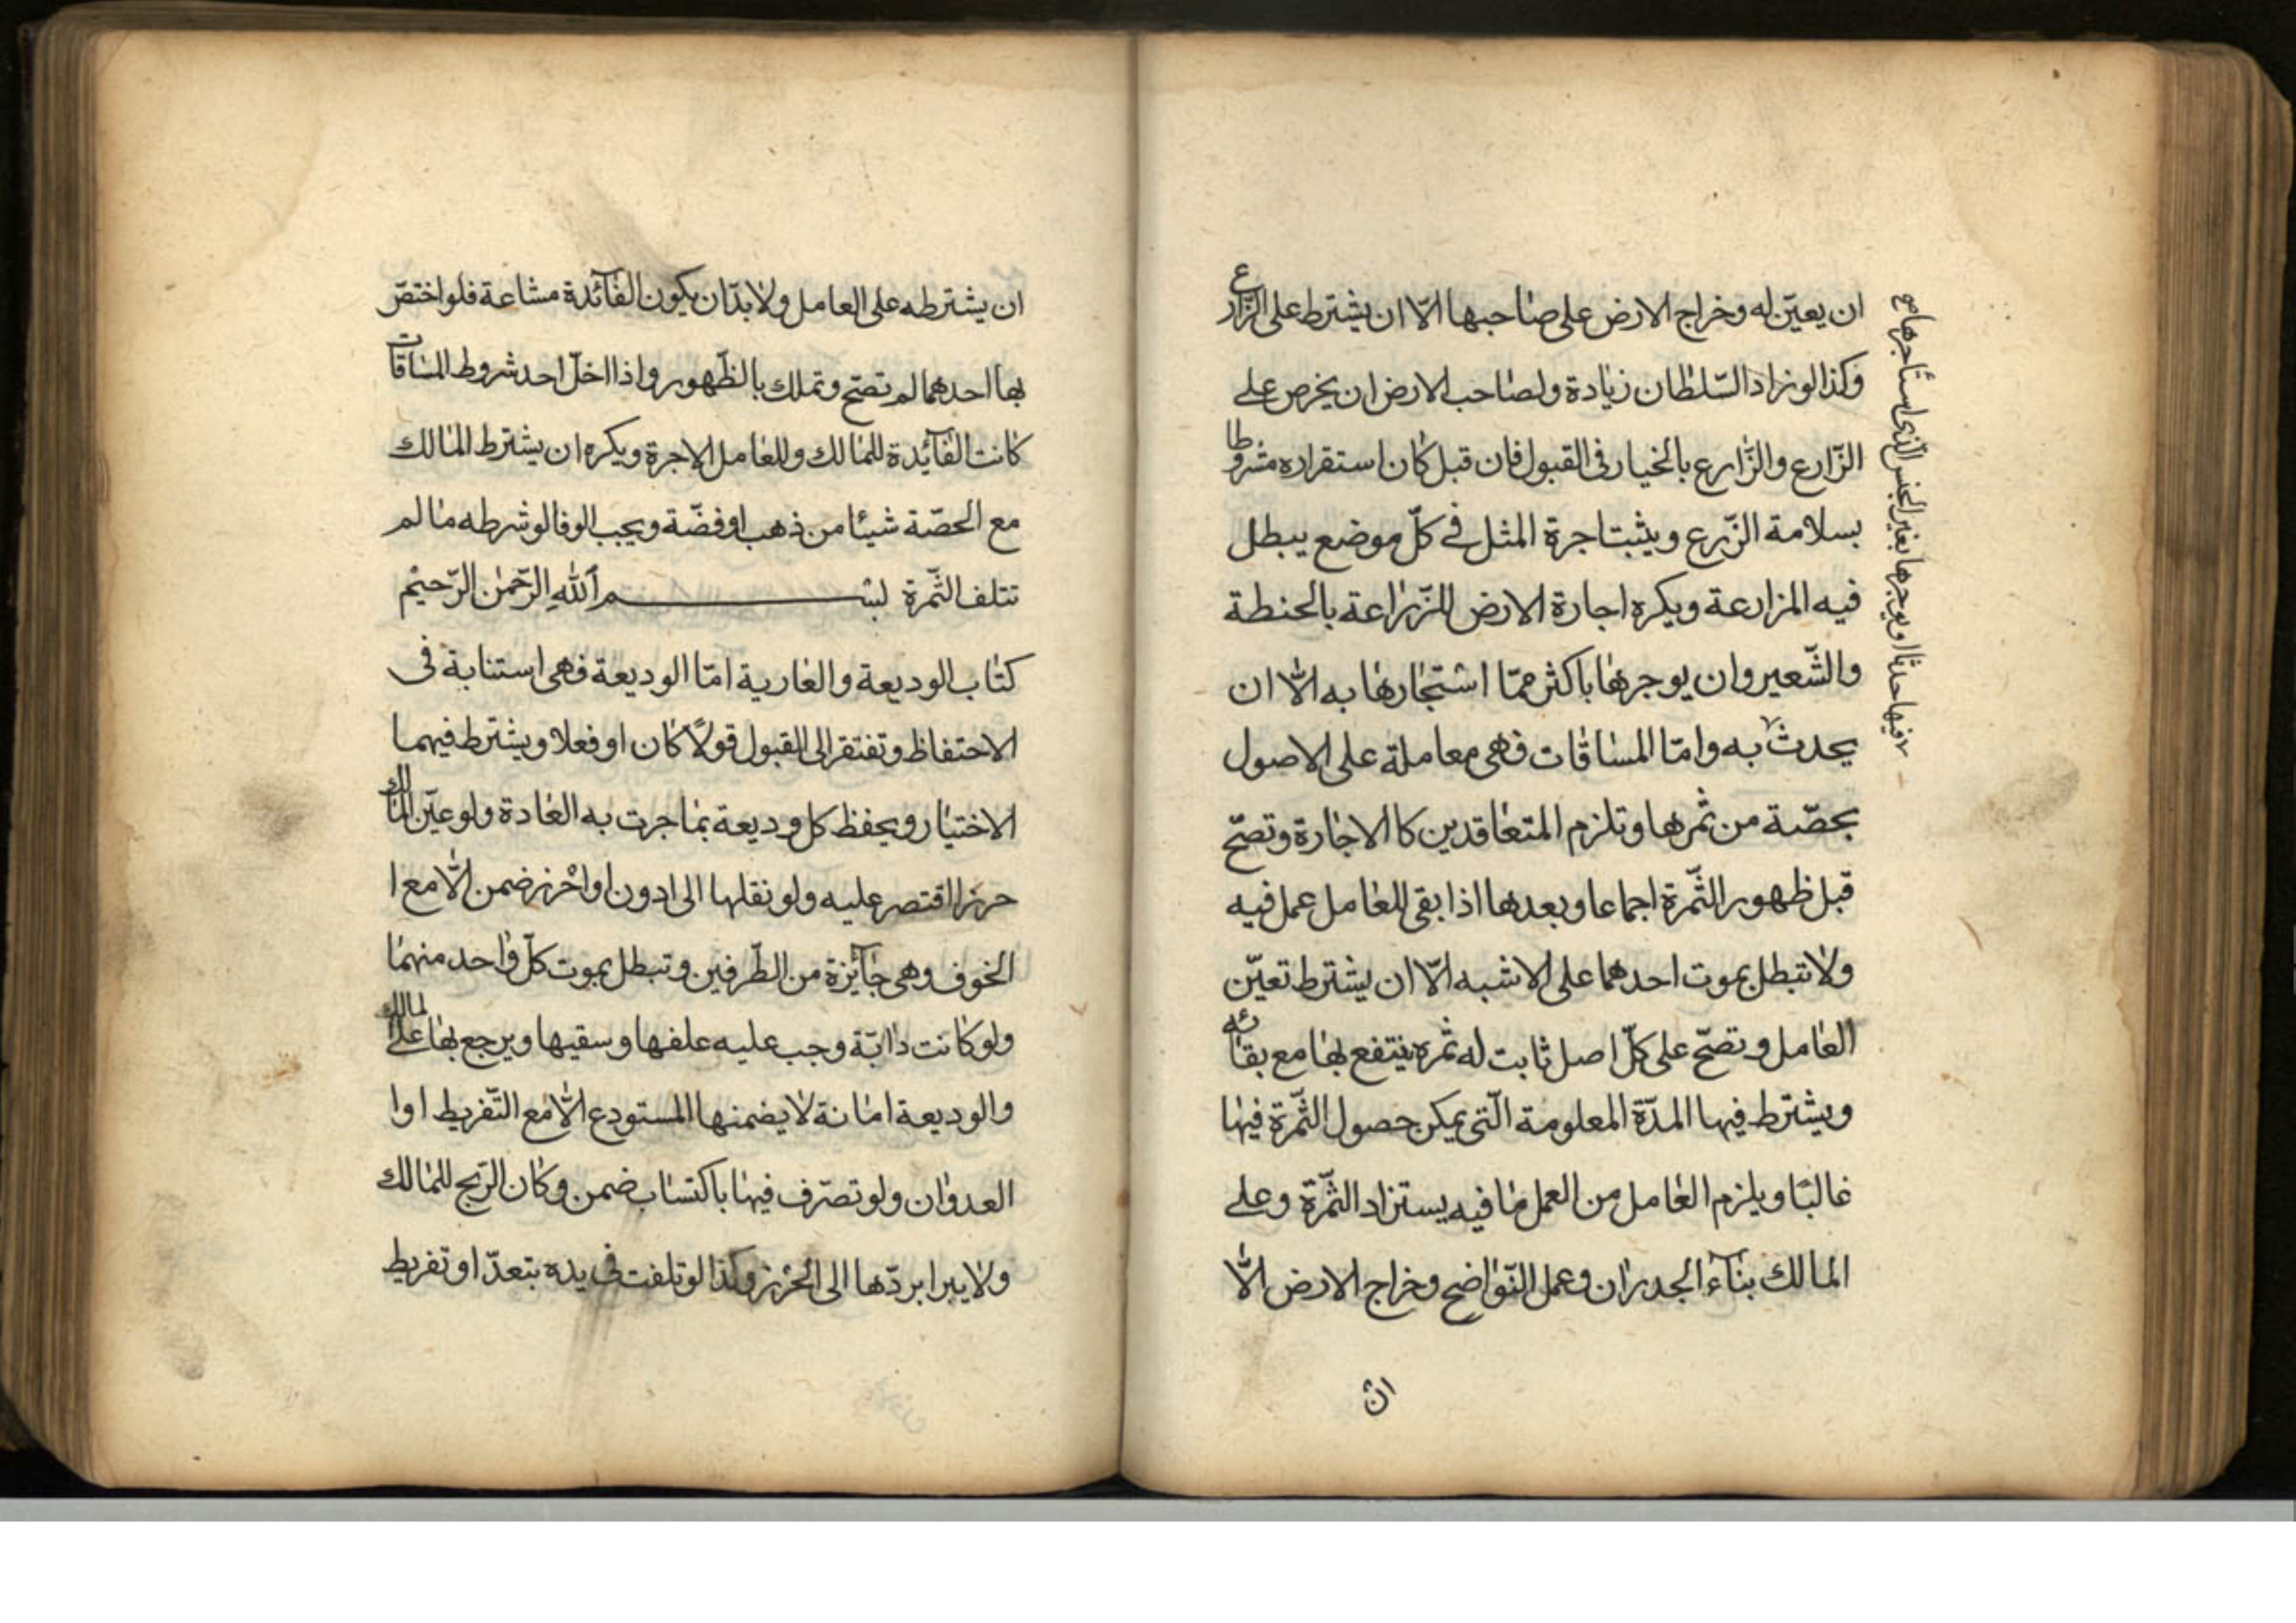 ان يعيّن له وخراج الارض على صاحبها الّا ان يشترط على الزّارع
وكذا لو زاد السّلطان زيادة ولصاحب الارض ان يخرص على
الزّارع والزّارع بالخيار فى القبول فان قبل كان استقراره مشروطا
بسلامة الزّرع ويثبت اجرة المثل فى كلّ موضع يبطل
فيه المزارعة ويكره اجارة الارض للزّراعة بالحنطة
والشّعير وان يوجرها باكثر ممّا استجارها به الّا ان
يحدث به وامّا المساقات فهى معاملة على الاصول
بحصّة من ثمرها وتلزم المتعاقدين كالاجارة وتصحّ
قبل ظهور الثّمرة اجماعا وبعدها اذا بقى للعامل عمل فيه
ولا تبطل بموت احدهما على الاشبه الّا ان يشترط تعيّن
العامل وتصحّ على كلّ اصل ثابت له ثمره ينتفع بها مع بقائه
ويشترط فيها المدّة المعلومة الّتى يمكن حصول الثّمرة فيها
غالبًا ويلزم العامل من العمل ما فيه يستزاد الثّمرة وعلى
المالك بناء الجدران وعمل النّواضح وخراج الارض الّا
ان
فيها حدثا او يوجرها بغير الجنس الّذى استاجرها صح
ان يشترطه على العامل ولا بدّ ان يكون الفائدة مشاعة فلو اختصّ
بها احدهما لم تصحّ وتملك بالظّهور واذا اخلّ احد شروط المساقات
كانت الفائدة للمالك وللعامل الاجرة ويكره ان يشترط المالك
مع الحصّة شيئا من ذهب او فضّة ويجب الوفا لو شرطه ما لم
تتلف الثّمرة بسم الله الرّحمن الرّحيم
كتاب الوديعة والعارية امّا الوديعة فهى استنابة فى
الاحتفاظ وتفتقر الى القبول قولًا كان او فعلا ويشترط فيهما
الاختيار ويحفظ كل وديعة بما جرت به العادة ولو عيّن المالك
حرزا اقتصر عليه ولو نقلها الى ادون او احرز ضمن الّا مع ا
الخوف وهى جائزة من الطّرفين وتبطل بموت كلّ واحد منهما
ولو كانت دابّة وجب عليه علفها وسقيها ويرجع بها على المالك
والوديعة امانة لا يضمنها المستودع الّا مع التّفريط او ا
العدوان ولو تصرّف فيها باكتساب ضمن وكان الرّبح للمالك
ولا يبرا بردّها الى الحرز وكذا لو تلفت فى يده بتعدّ او تفريط